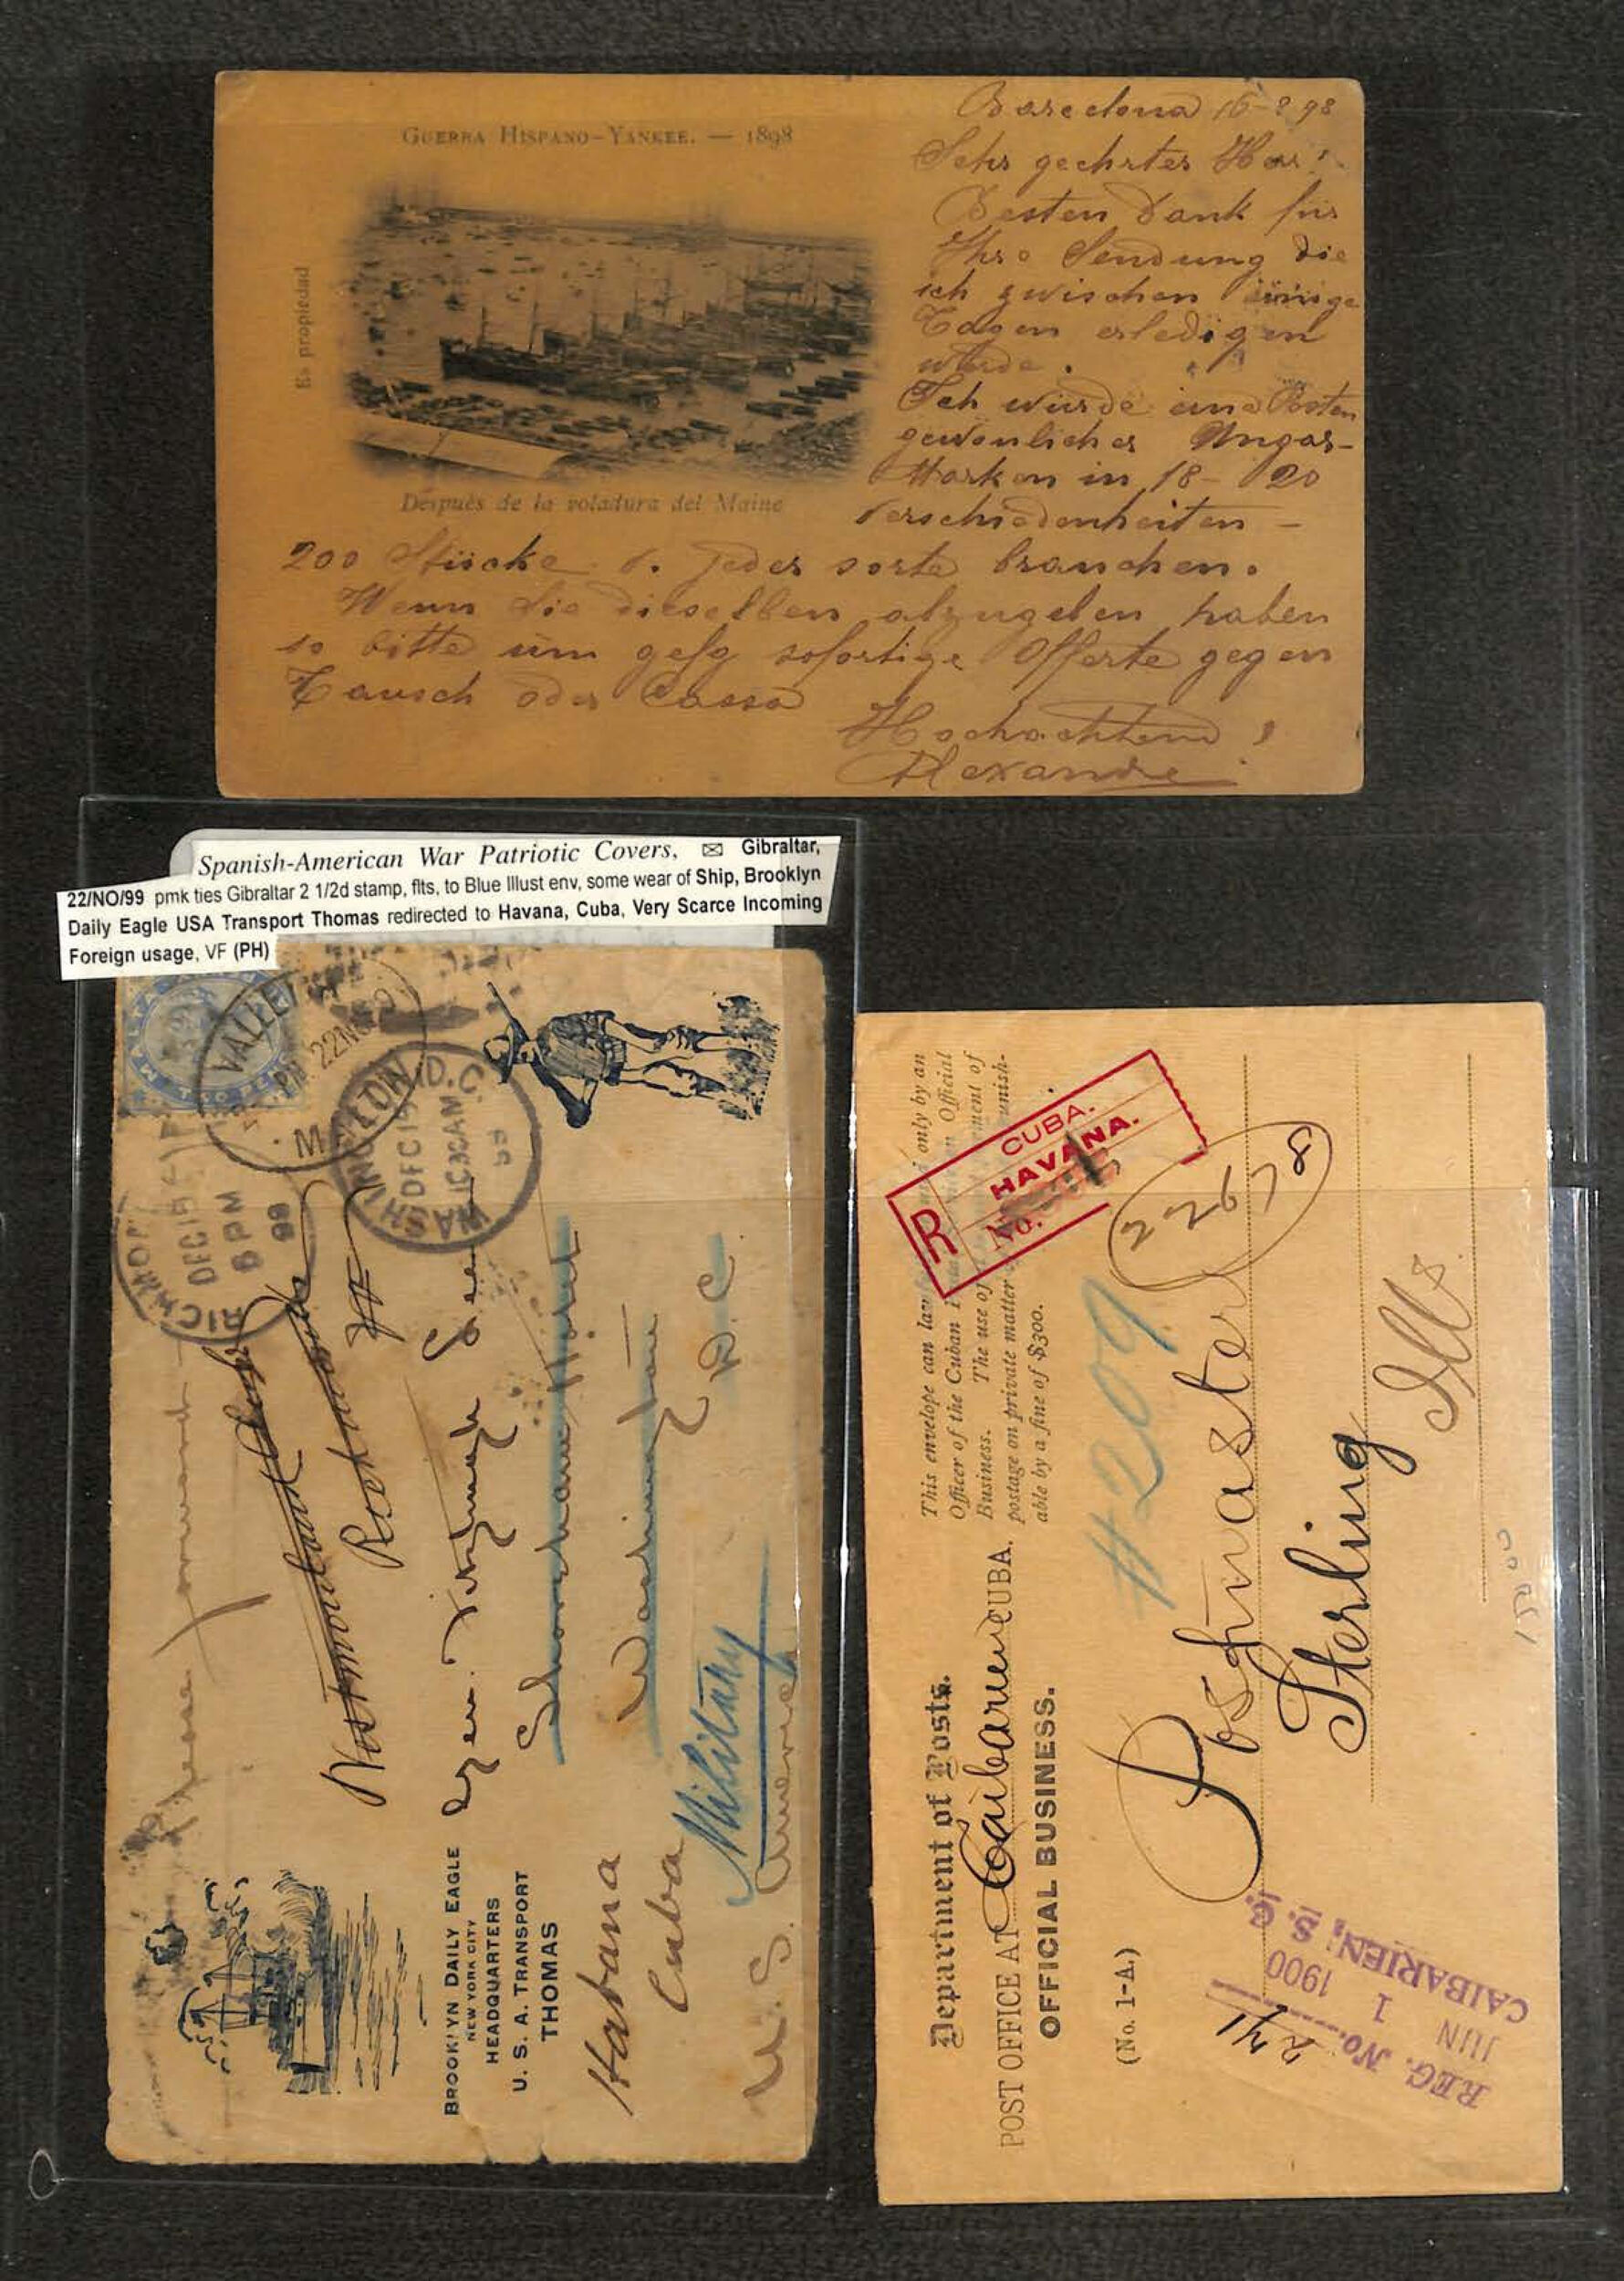 GUERRA HISPANO-YANKEE. — 1898
Es propiedad
Después de la voladura del Maine
Barcelona 16-8 98
Sehr geehrter Herr!
Besten Dank für
Ihre Sendung die
ich zwischen einige
Tagen erledigen
werde.
Ich würde eine Posten
gewönlicher Ungar-
Marken in 18-20
Verschiedenheiten -
200 Stücke v. jeder sorte brauchen.
Wenn Sie dieselben abzugeben haben
so bitte um gefg sofortige Offerte gegen
Tausch oder Cassa
Hochachtend
Alexandre
Spanish-American War Patriotic Covers, ✉ Gibraltar,
22/NO/99 pmk ties Gibraltar 2 1/2d stamp, flts, to Blue Illust env, some wear of Ship, Brooklyn
Daily Eagle USA Transport Thomas redirected to Havana, Cuba, Very Scarce Incoming
Foreign usage, VF (PH)
MALTA
VALLETTA
PM 22 NO 99
M
WASHINGTON, D.C.
DEC 15
10 30 AM
99
RICHMOND
DEC 15
8 PM
99
Please forward
Westmoreland Club
Richmond
Va
BROOKLYN DAILY EAGLE
NEW YORK CITY
HEADQUARTERS
U. S. A. TRANSPORT
THOMAS
Gen. Fitzhugh Lee
Shoreham Hotel
Washington
D.C.
Habana
Cuba
Military
U. S. America
Department of Posts.
POST OFFICE AT Caibarien CUBA.
OFFICIAL BUSINESS.
(No. 1-A.)
This envelope can law only by an
Officer of the Cuban P Official
Business. The use of ment of
postage on private matter unish-
able by a fine of $300.
R
CUBA.
HAVANA.
No.
22678
#209
Postmaster
Sterling
Ills.
1500
REG. No. 271
JUN 1 1900
CAIBARIEN, S. C.